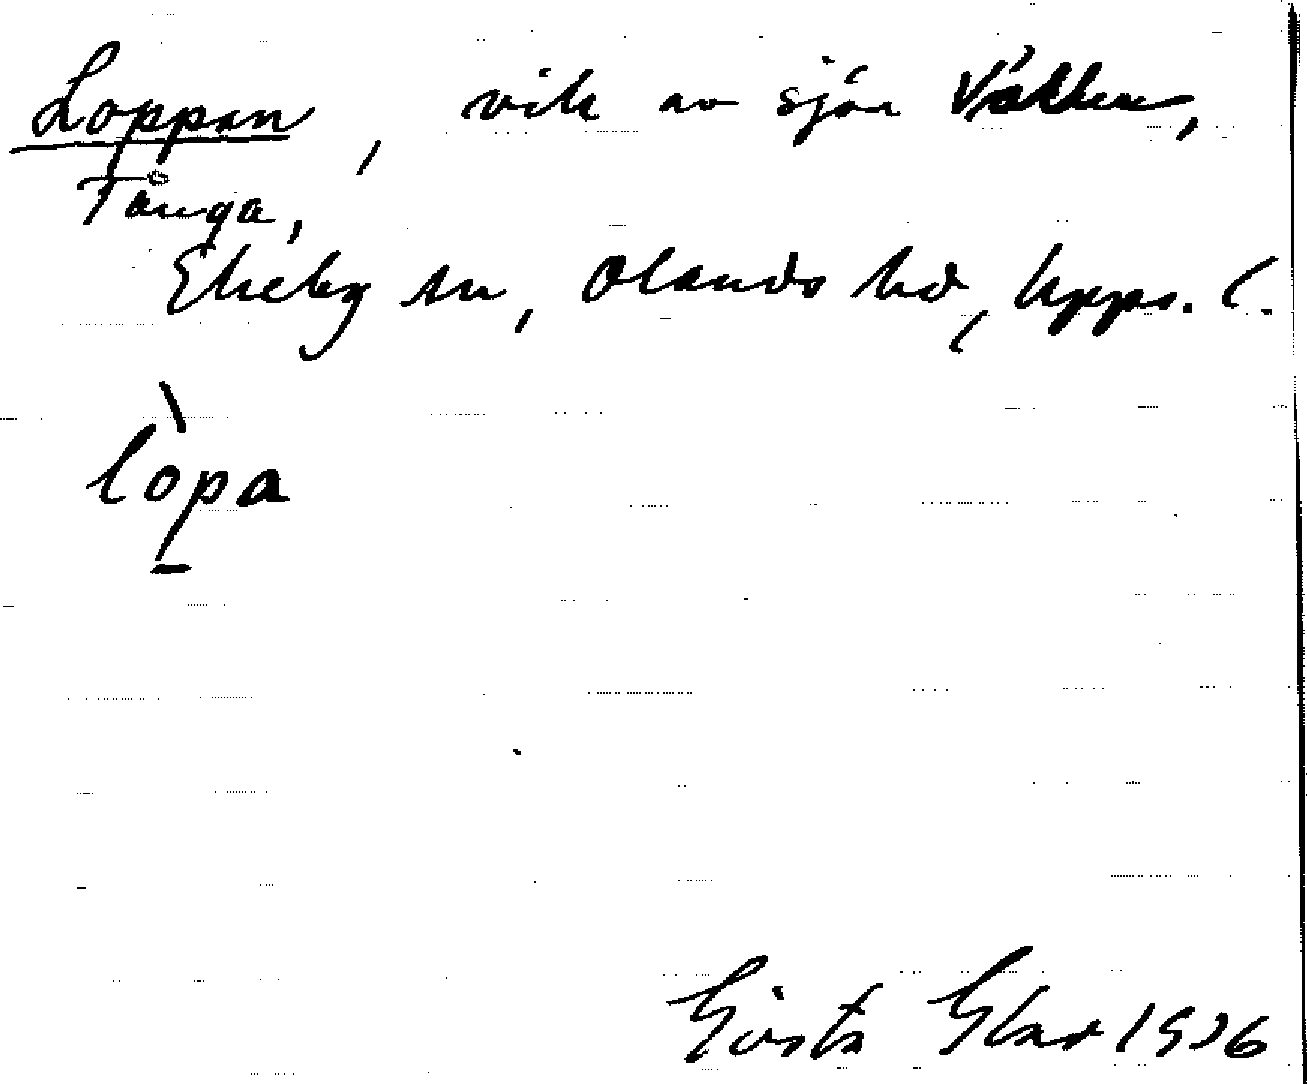 Loppan, vik av sjön Vällen,
Tånga,
Ekeby sn, Olands hd, Upps. l.
lòpa
Gösta Glas 1936